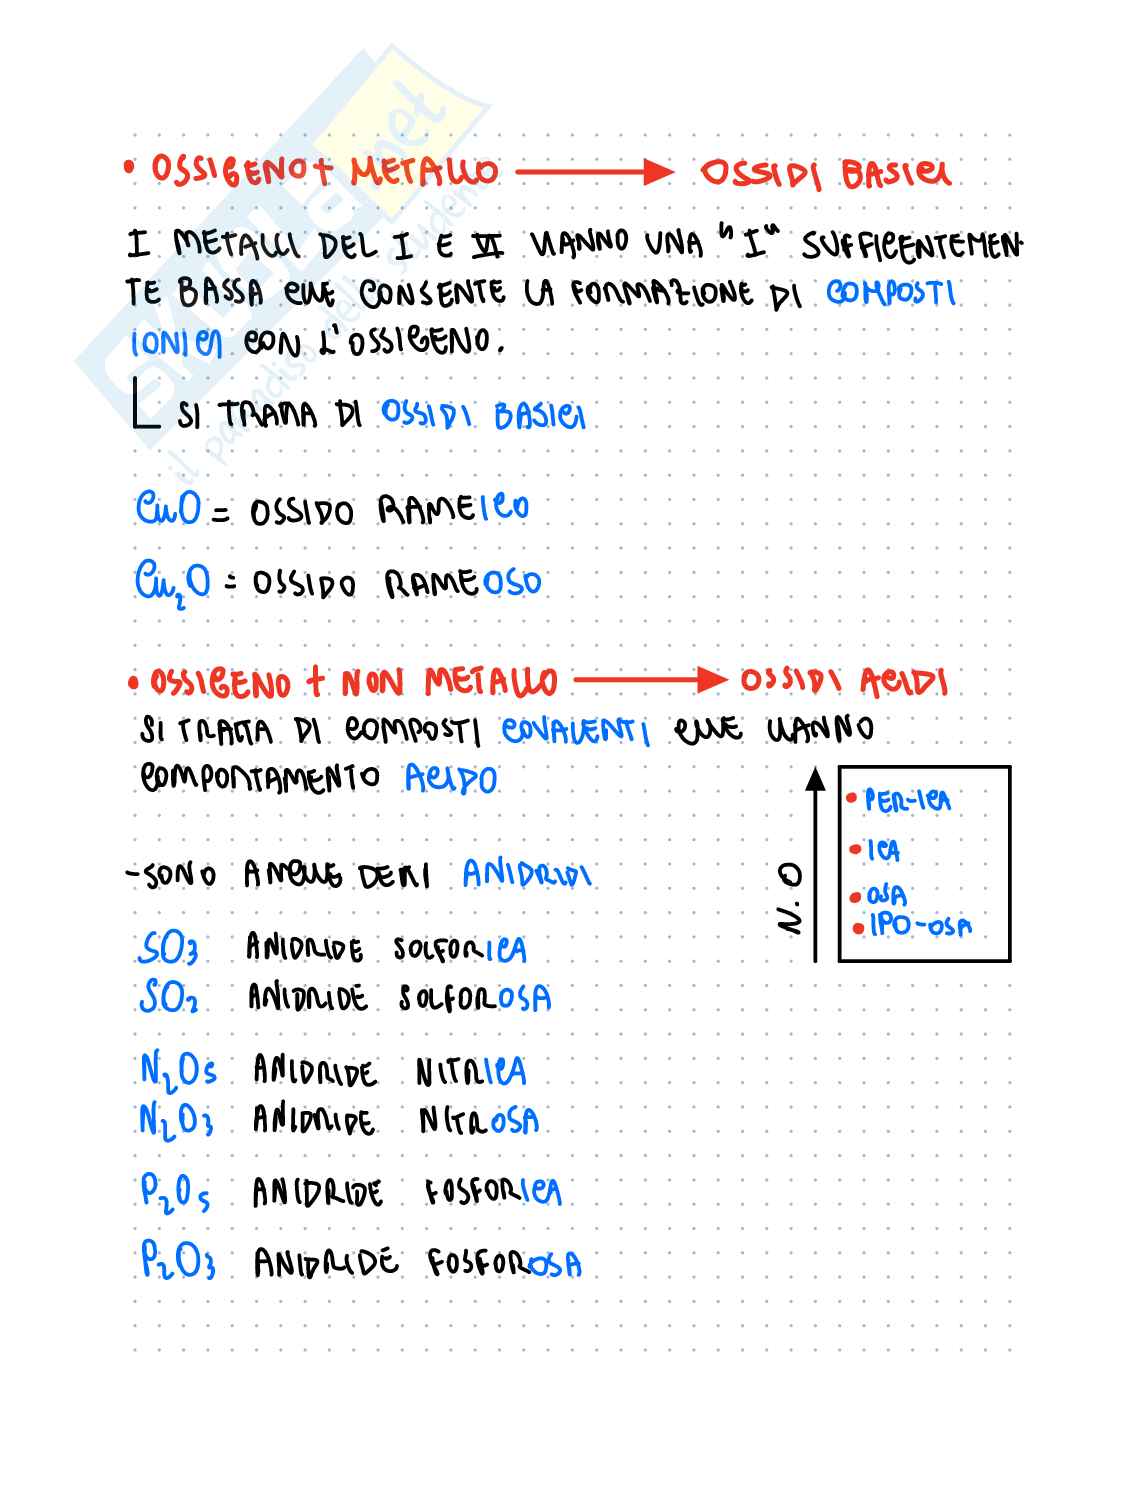 • OSSIGENO + METALLO → OSSIDI BASICI
I METALLI DEL I E VI HANNO UNA "I" SUFFICENTEMEN-
TE BASSA CHE CONSENTE LA FORMAZIONE DI COMPOSTI
IONICI CON L'OSSIGENO.
SI TRATTA DI OSSIDI BASICI
CuO = OSSIDO RAMEICO
Cu₂O = OSSIDO RAMEOSO
• OSSIGENO + NON METALLO → OSSIDI ACIDI
SI TRATTA DI COMPOSTI COVALENTI CHE HANNO
COMPORTAMENTO ACIDO
- SONO ANCHE DETTI ANIDRIDI
SO₃ ANIDRIDE SOLFORICA
SO₂ ANIDRIDE SOLFOROSA
N₂O₅ ANIDRIDE NITRICA
N₂O₃ ANIDRIDE NITROSA
P₂O₅ ANIDRIDE FOSFORICA
P₂O₃ ANIDRIDE FOSFOROSA
N.O
• PER-ICA
• ICA
• OSA
• IPO-OSA
skuola.net
il paradiso dello studente